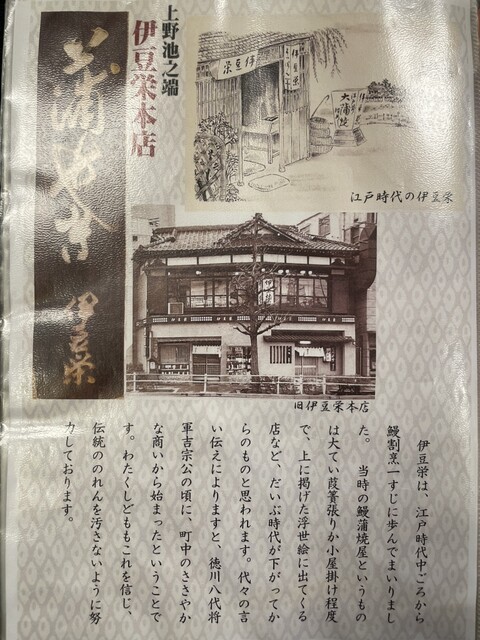 上野池之端
伊豆栄本店
伊豆栄
栄豆伊
伊豆栄
大蒲焼
江戸時代の伊豆栄
伊豆栄
旧伊豆栄本店
伊豆栄は、江戸時代中ごろから
鰻割烹一すじに歩んでまいりまし
た。　当時の鰻蒲焼屋というもの
は大てい葭簀張りか小屋掛け程度
で、上に掲げた浮世絵に出てくる
店など、だいぶ時代が下がってか
らのものと思われます。代々の言
い伝えによりますと、徳川八代将
軍吉宗公の頃に、町中のささやか
な商いから始まったということで
す。わたくしどももこれを信じ、
伝統ののれんを汚さないように努
力しております。